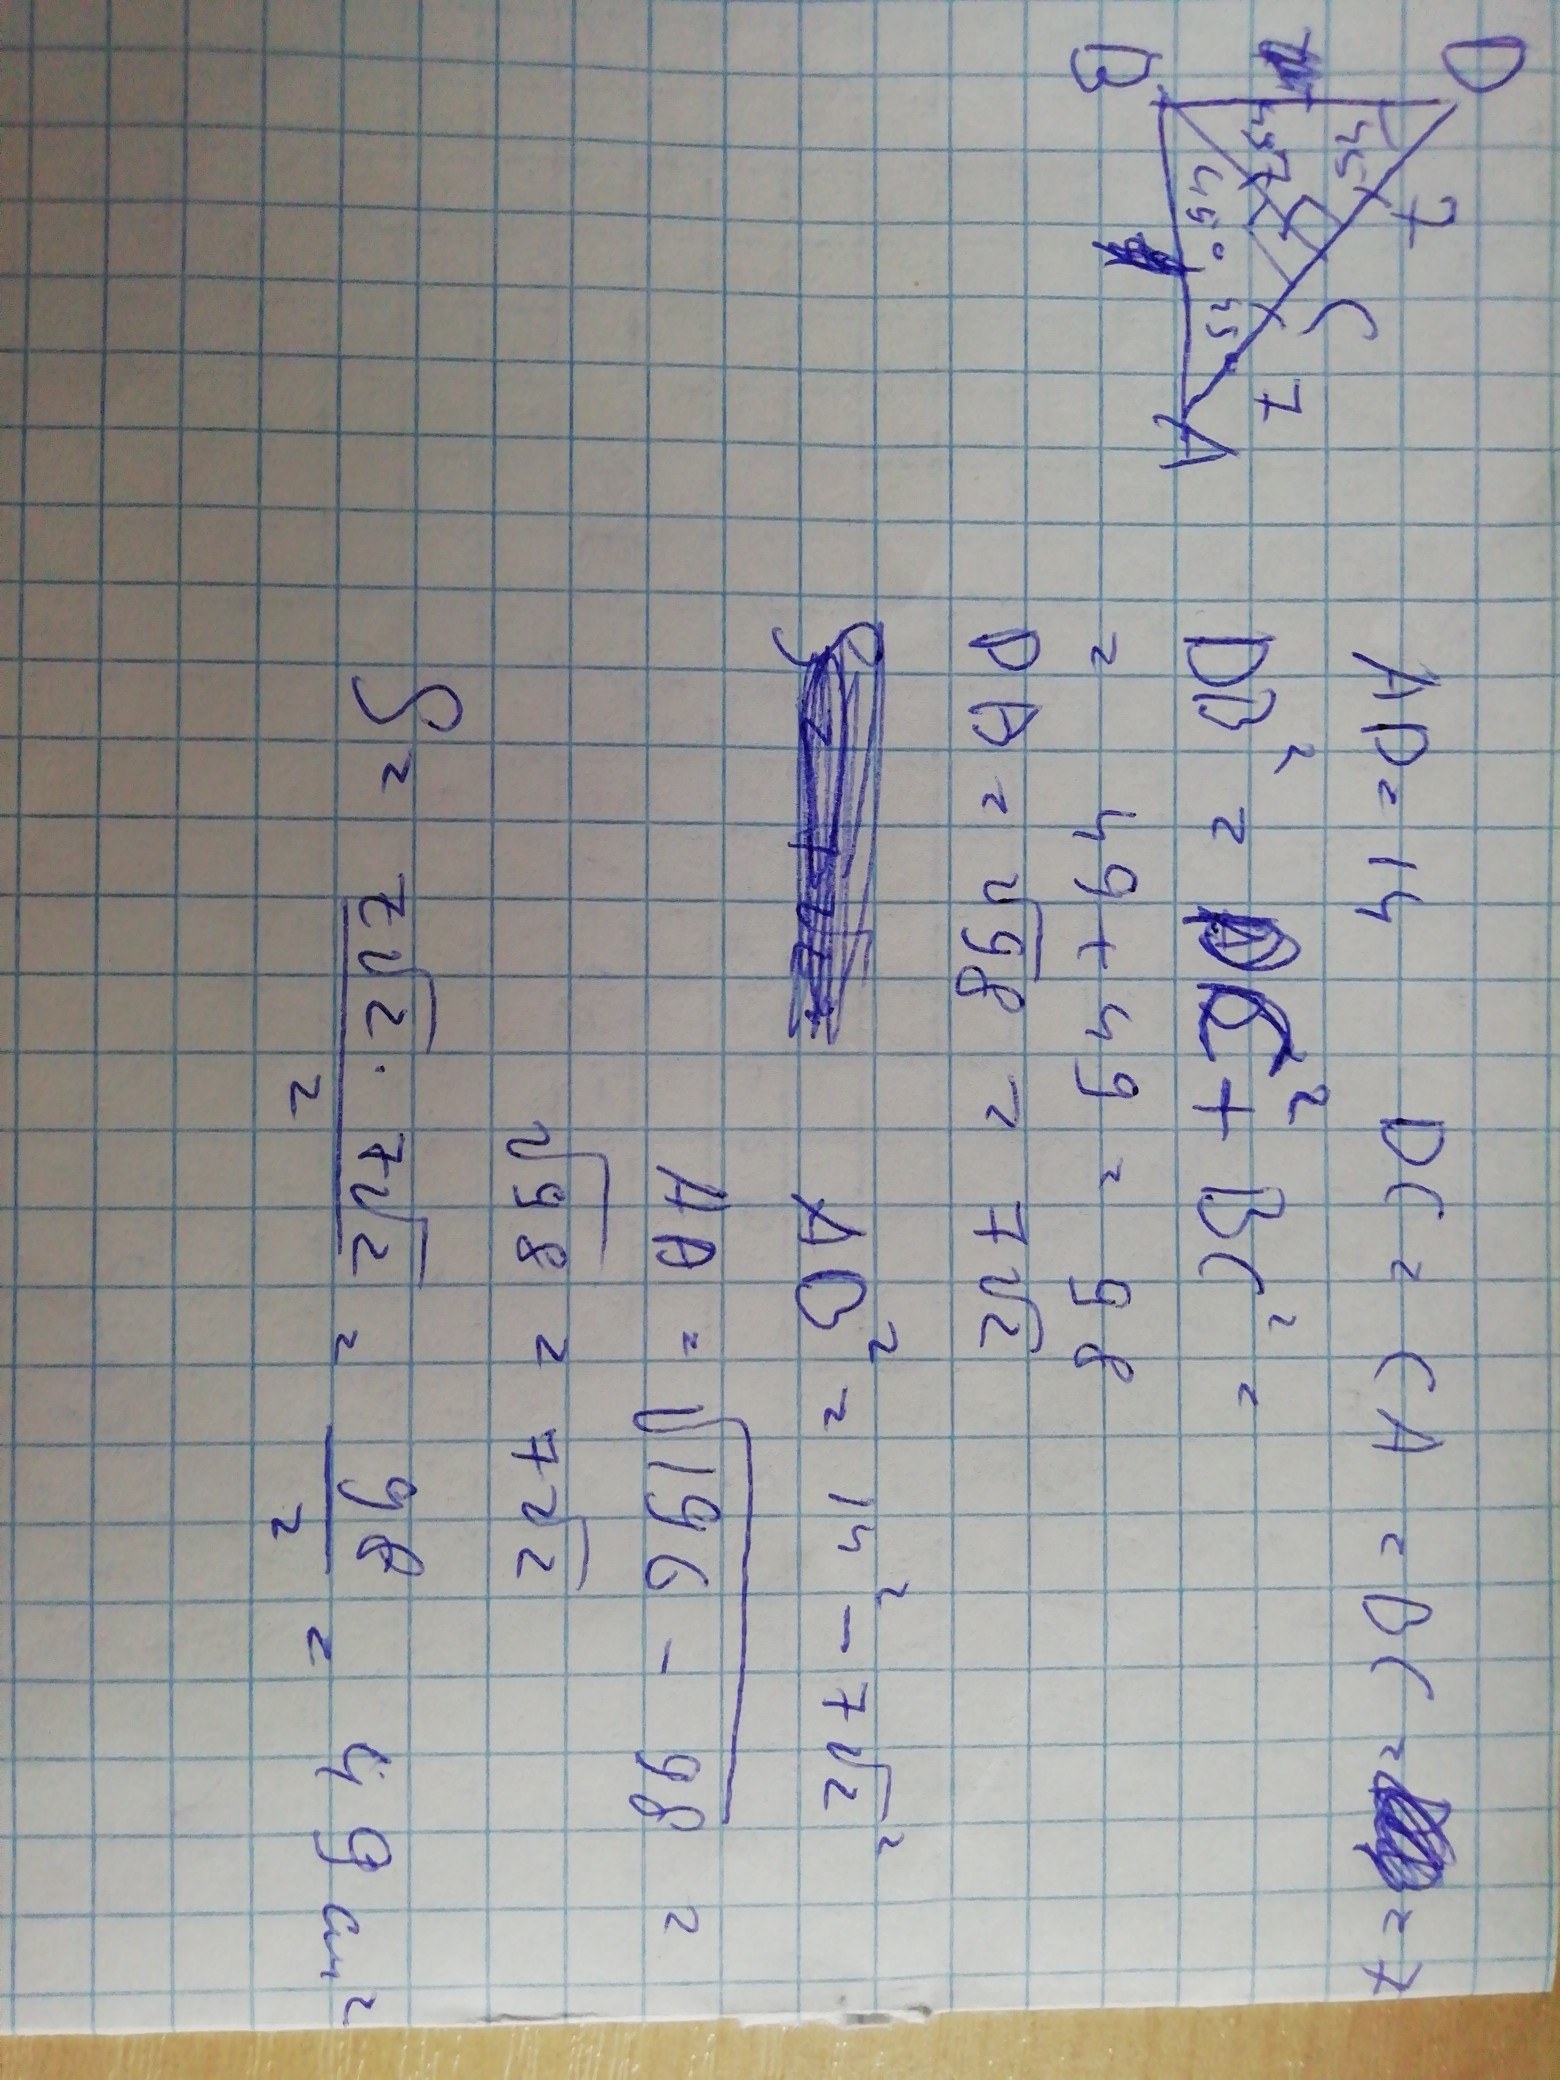 D 7 C 7 A
45 45 7 45° 45
B
AD = 14 DC = CA = BC = 7
DB² = DC² + BC² =
= 49 + 49 = 98
DB = √98 = 7√2
AB² = 14² - 7√2²
AB = √196 - 98 =
√98 = 7√2
S = 7√2 · 7√2 / 2 = 98 / 2 = 49 см²